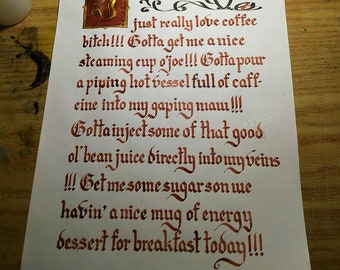 just really love coffee
bitch!!! Gotta get me a nice
steaming cup o'joe!!! Gotta pour
a piping hot vessel full of caff-
eine into my gaping maw!!!
Gotta inject some of that good
ol' bean juice directly into my veins
!!! Get me some sugar son we
havin' a nice mug of energy
dessert for breakfast today!!!